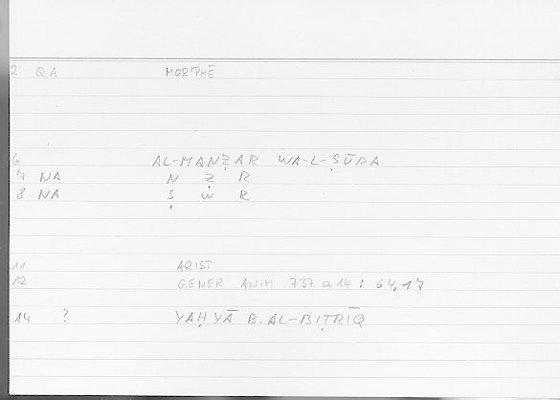 2 QA MORPHĒ
6 AL-MANẒAR WA-L-ṢŪRA
7 NA N Ẓ R
8 NA Ṣ W R
11 ARIST
12 GENER ANIM 737 a 14 : 64,17
14 ? YAḤYĀ B. AL-BIṬRĪQ